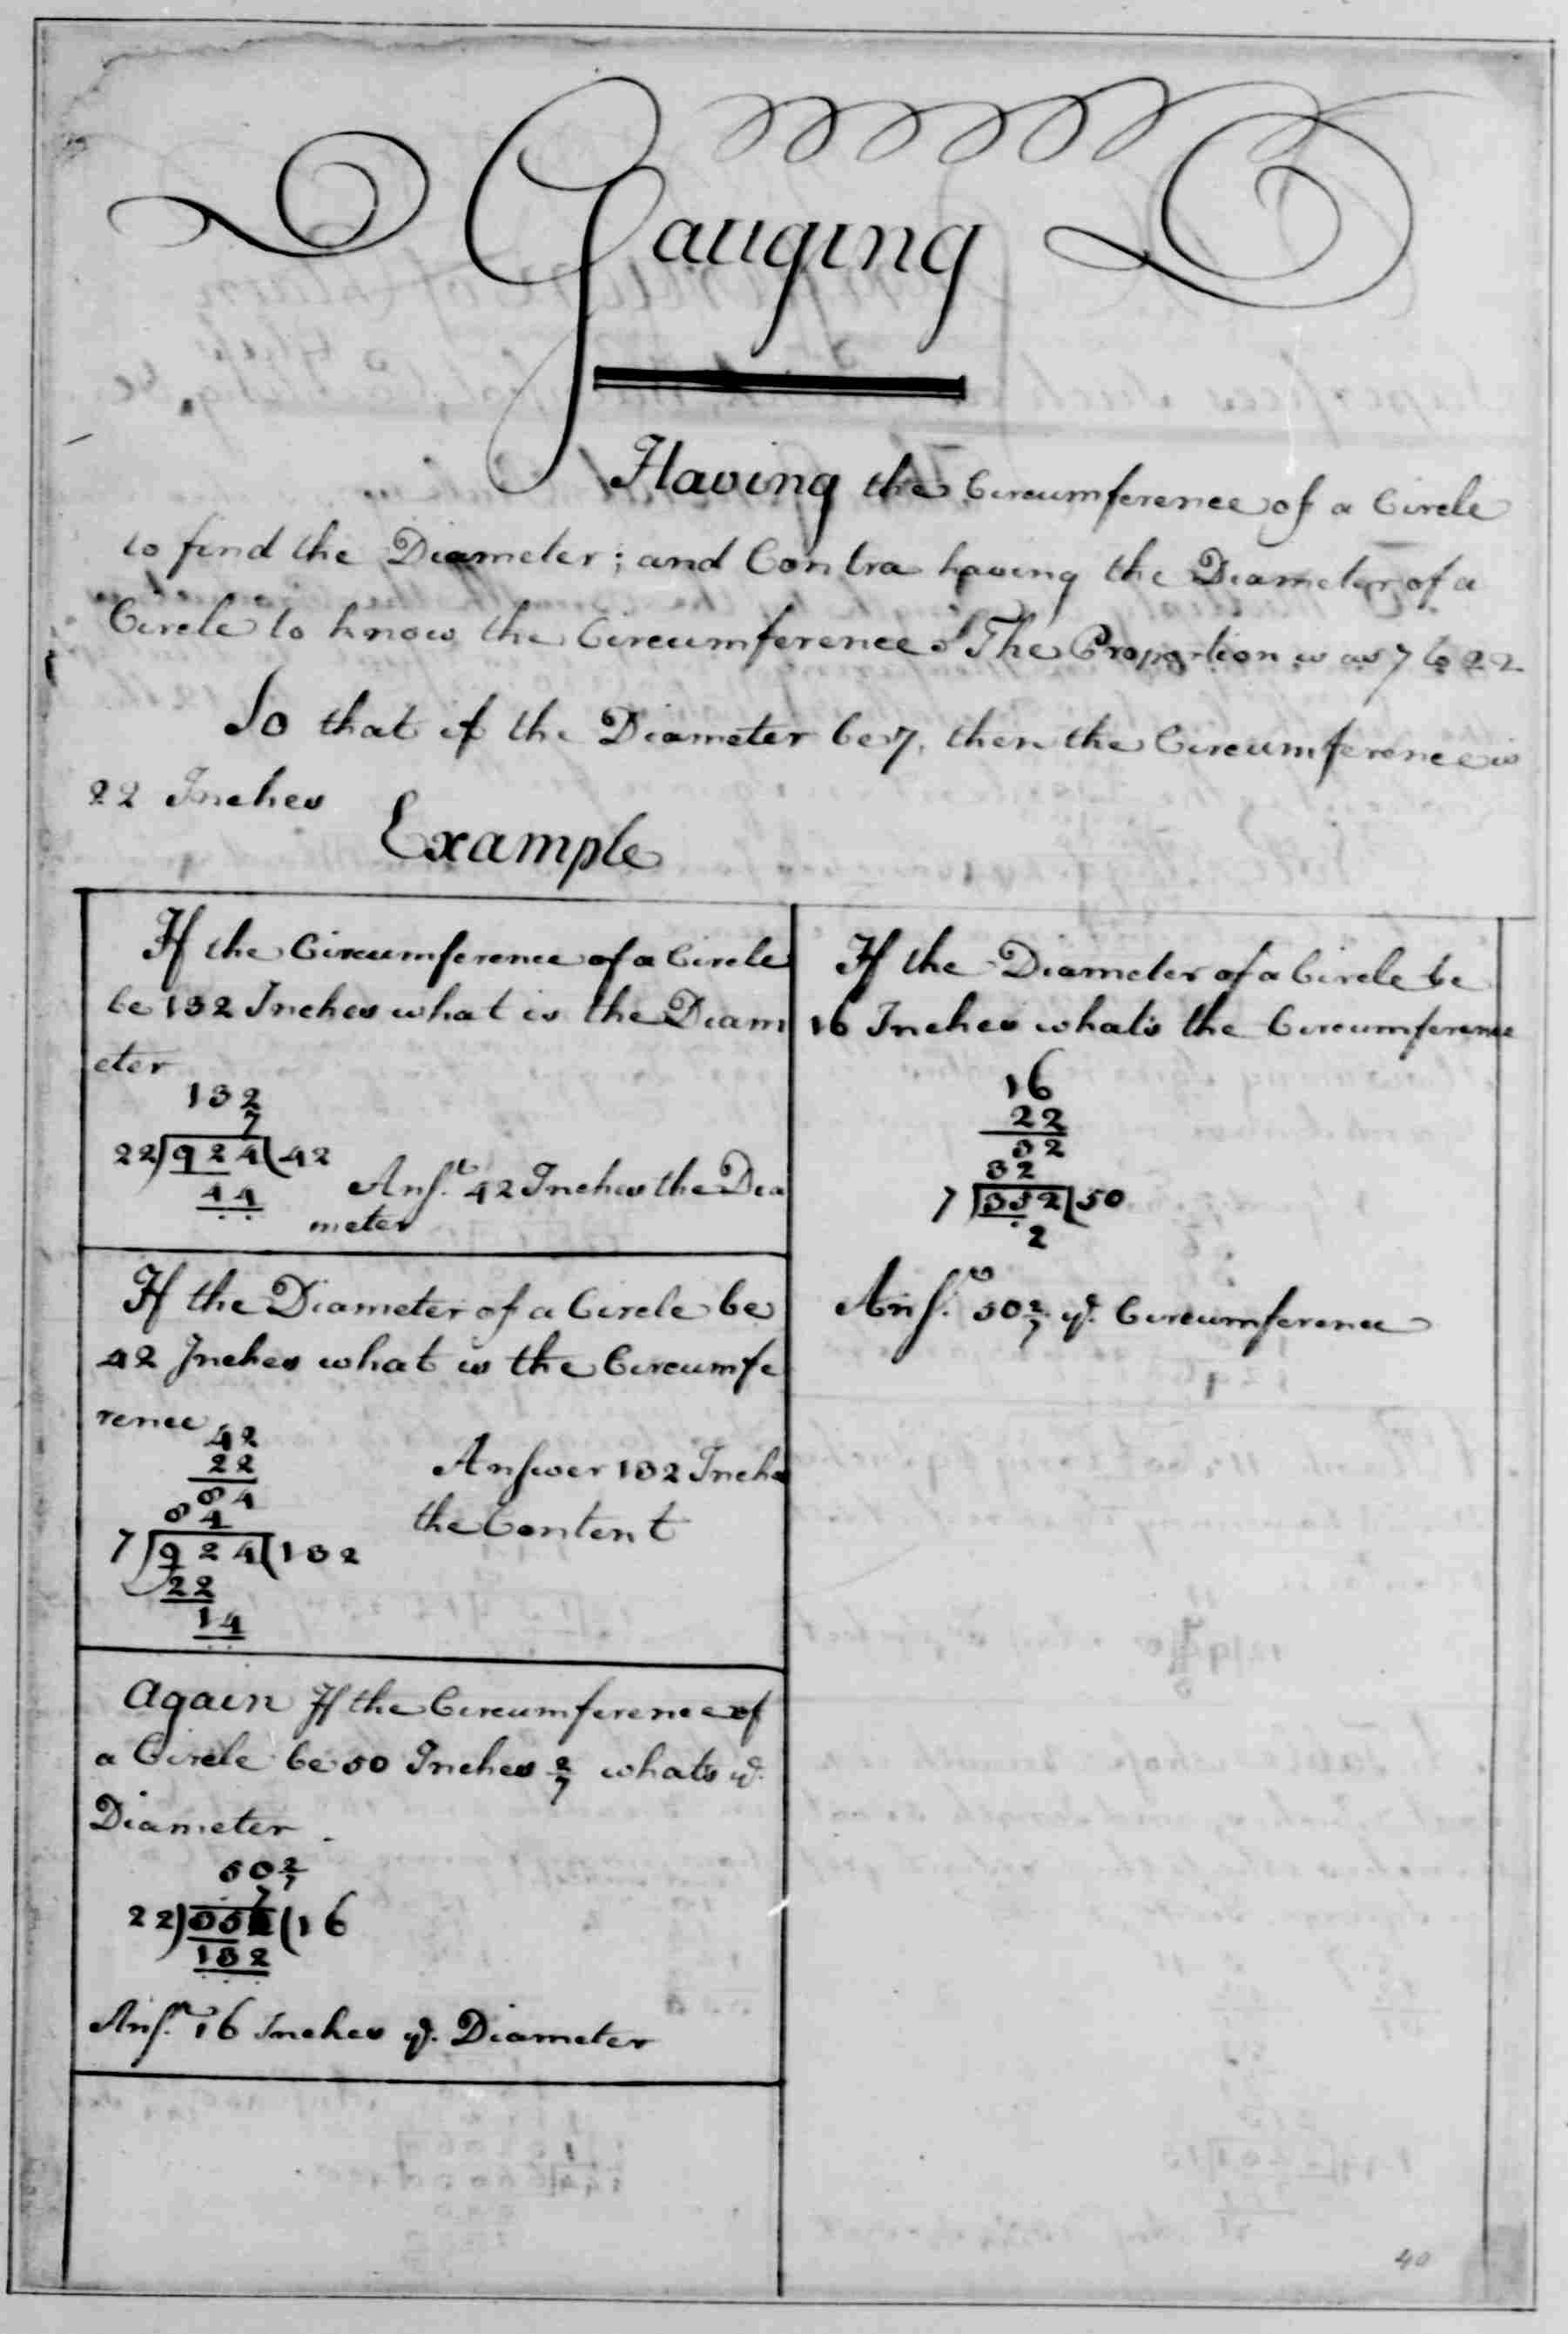 Gauging
Having the Circumference of a Circle
to find the Diameter; and Contra having the Diameter of a
Circle to know the Circumference The Proportion is as 7 to 22
So that if the Diameter be 7, then the Circumference is
22 Inches
Example
If the Circumference of a Circle
be 132 Inches what is the Diam
eter
132
7
22) 924 (42
44
Ansr. 42 Inches the Dia
meter
If the Diameter of a Circle be
42 Inches what is the Circumfe
rence
42
22
84
84
7) 924 (132
22
14
Answer 132 Inches
the Content
Again If the Circumference of
a Circle be 50 Inches 2/7 whats ye.
Diameter
50 2/7
7
22) 352 (16
132
Ansr. 16 Inches ye. Diameter
If the Diameter of a Circle be
16 Inches whats the Circumference
16
22
32
32
7) 352 (50
2
Ansr. 50 2/7 ye. Circumference
40